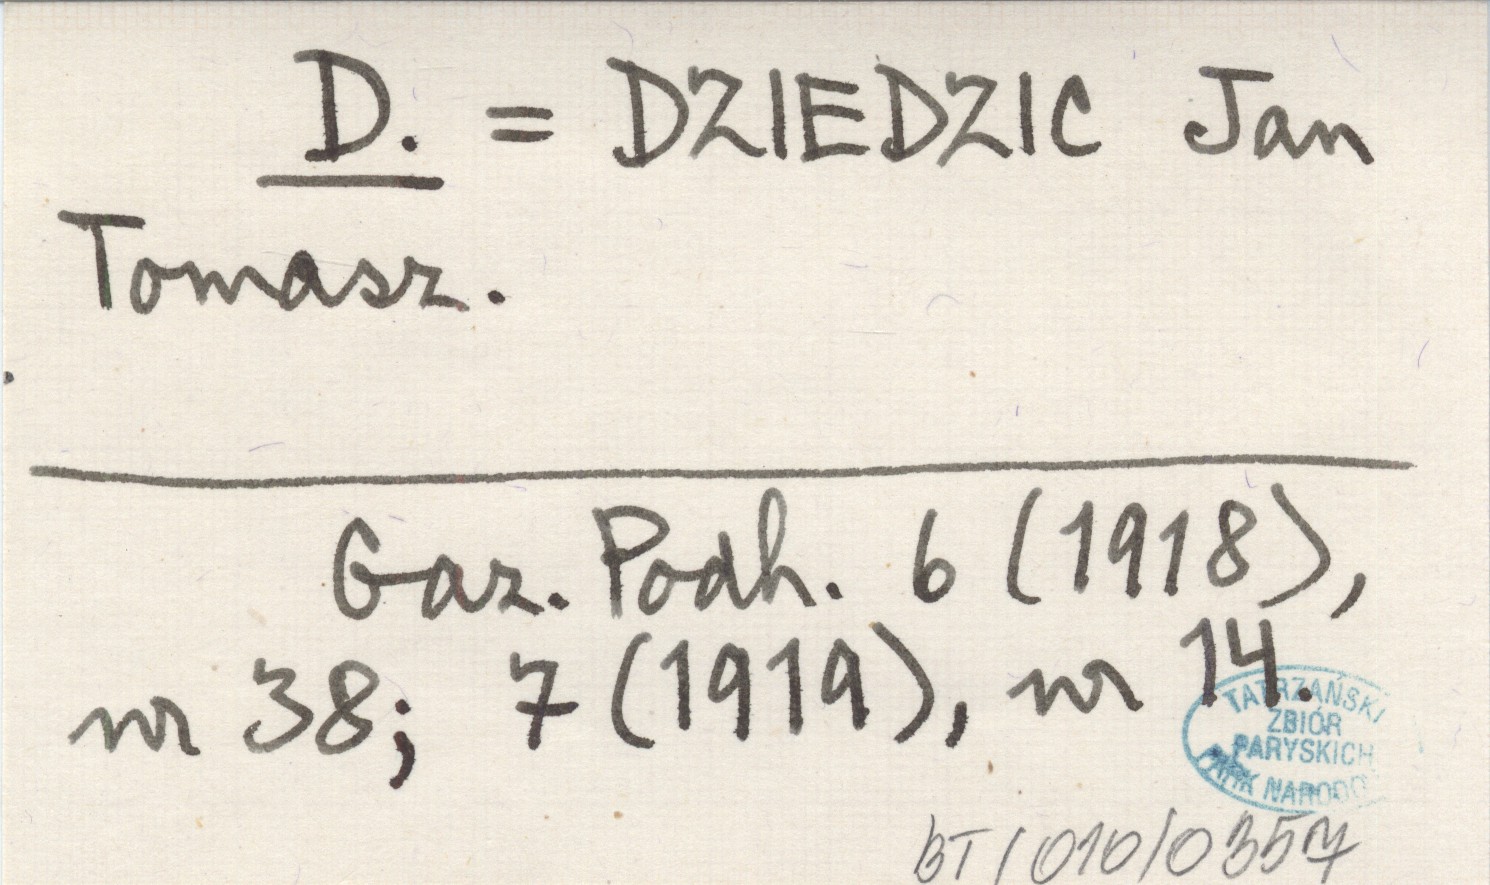 D. = DZIEDZIC Jan
Tomasz.
Gaz. Podh. 6 (1918),
nr 38; 7 (1919), nr 14.
TATRZAŃSKI
ZBIÓR
PARYSKICH
PARK NARODO
BT/010/0357